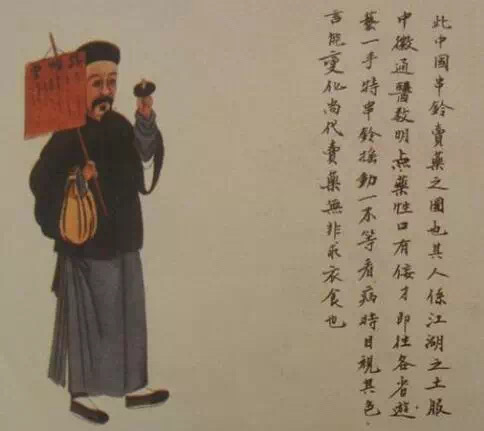 此中國串鈴賣藥之圖也其人係江湖之士服
中微通醫教明点藥性口有佞才即往各省遊
藝一手持串鈴搖動一不等看病時目視其色
言能變化尚代賣藥無非求衣食也